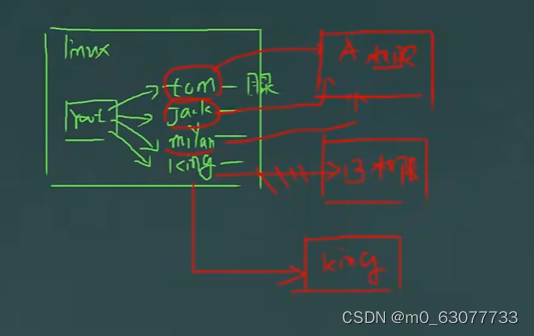 linux
tom
jack
milan
king
root
A 权限
B 权限
king
CSDN @m0_63077733